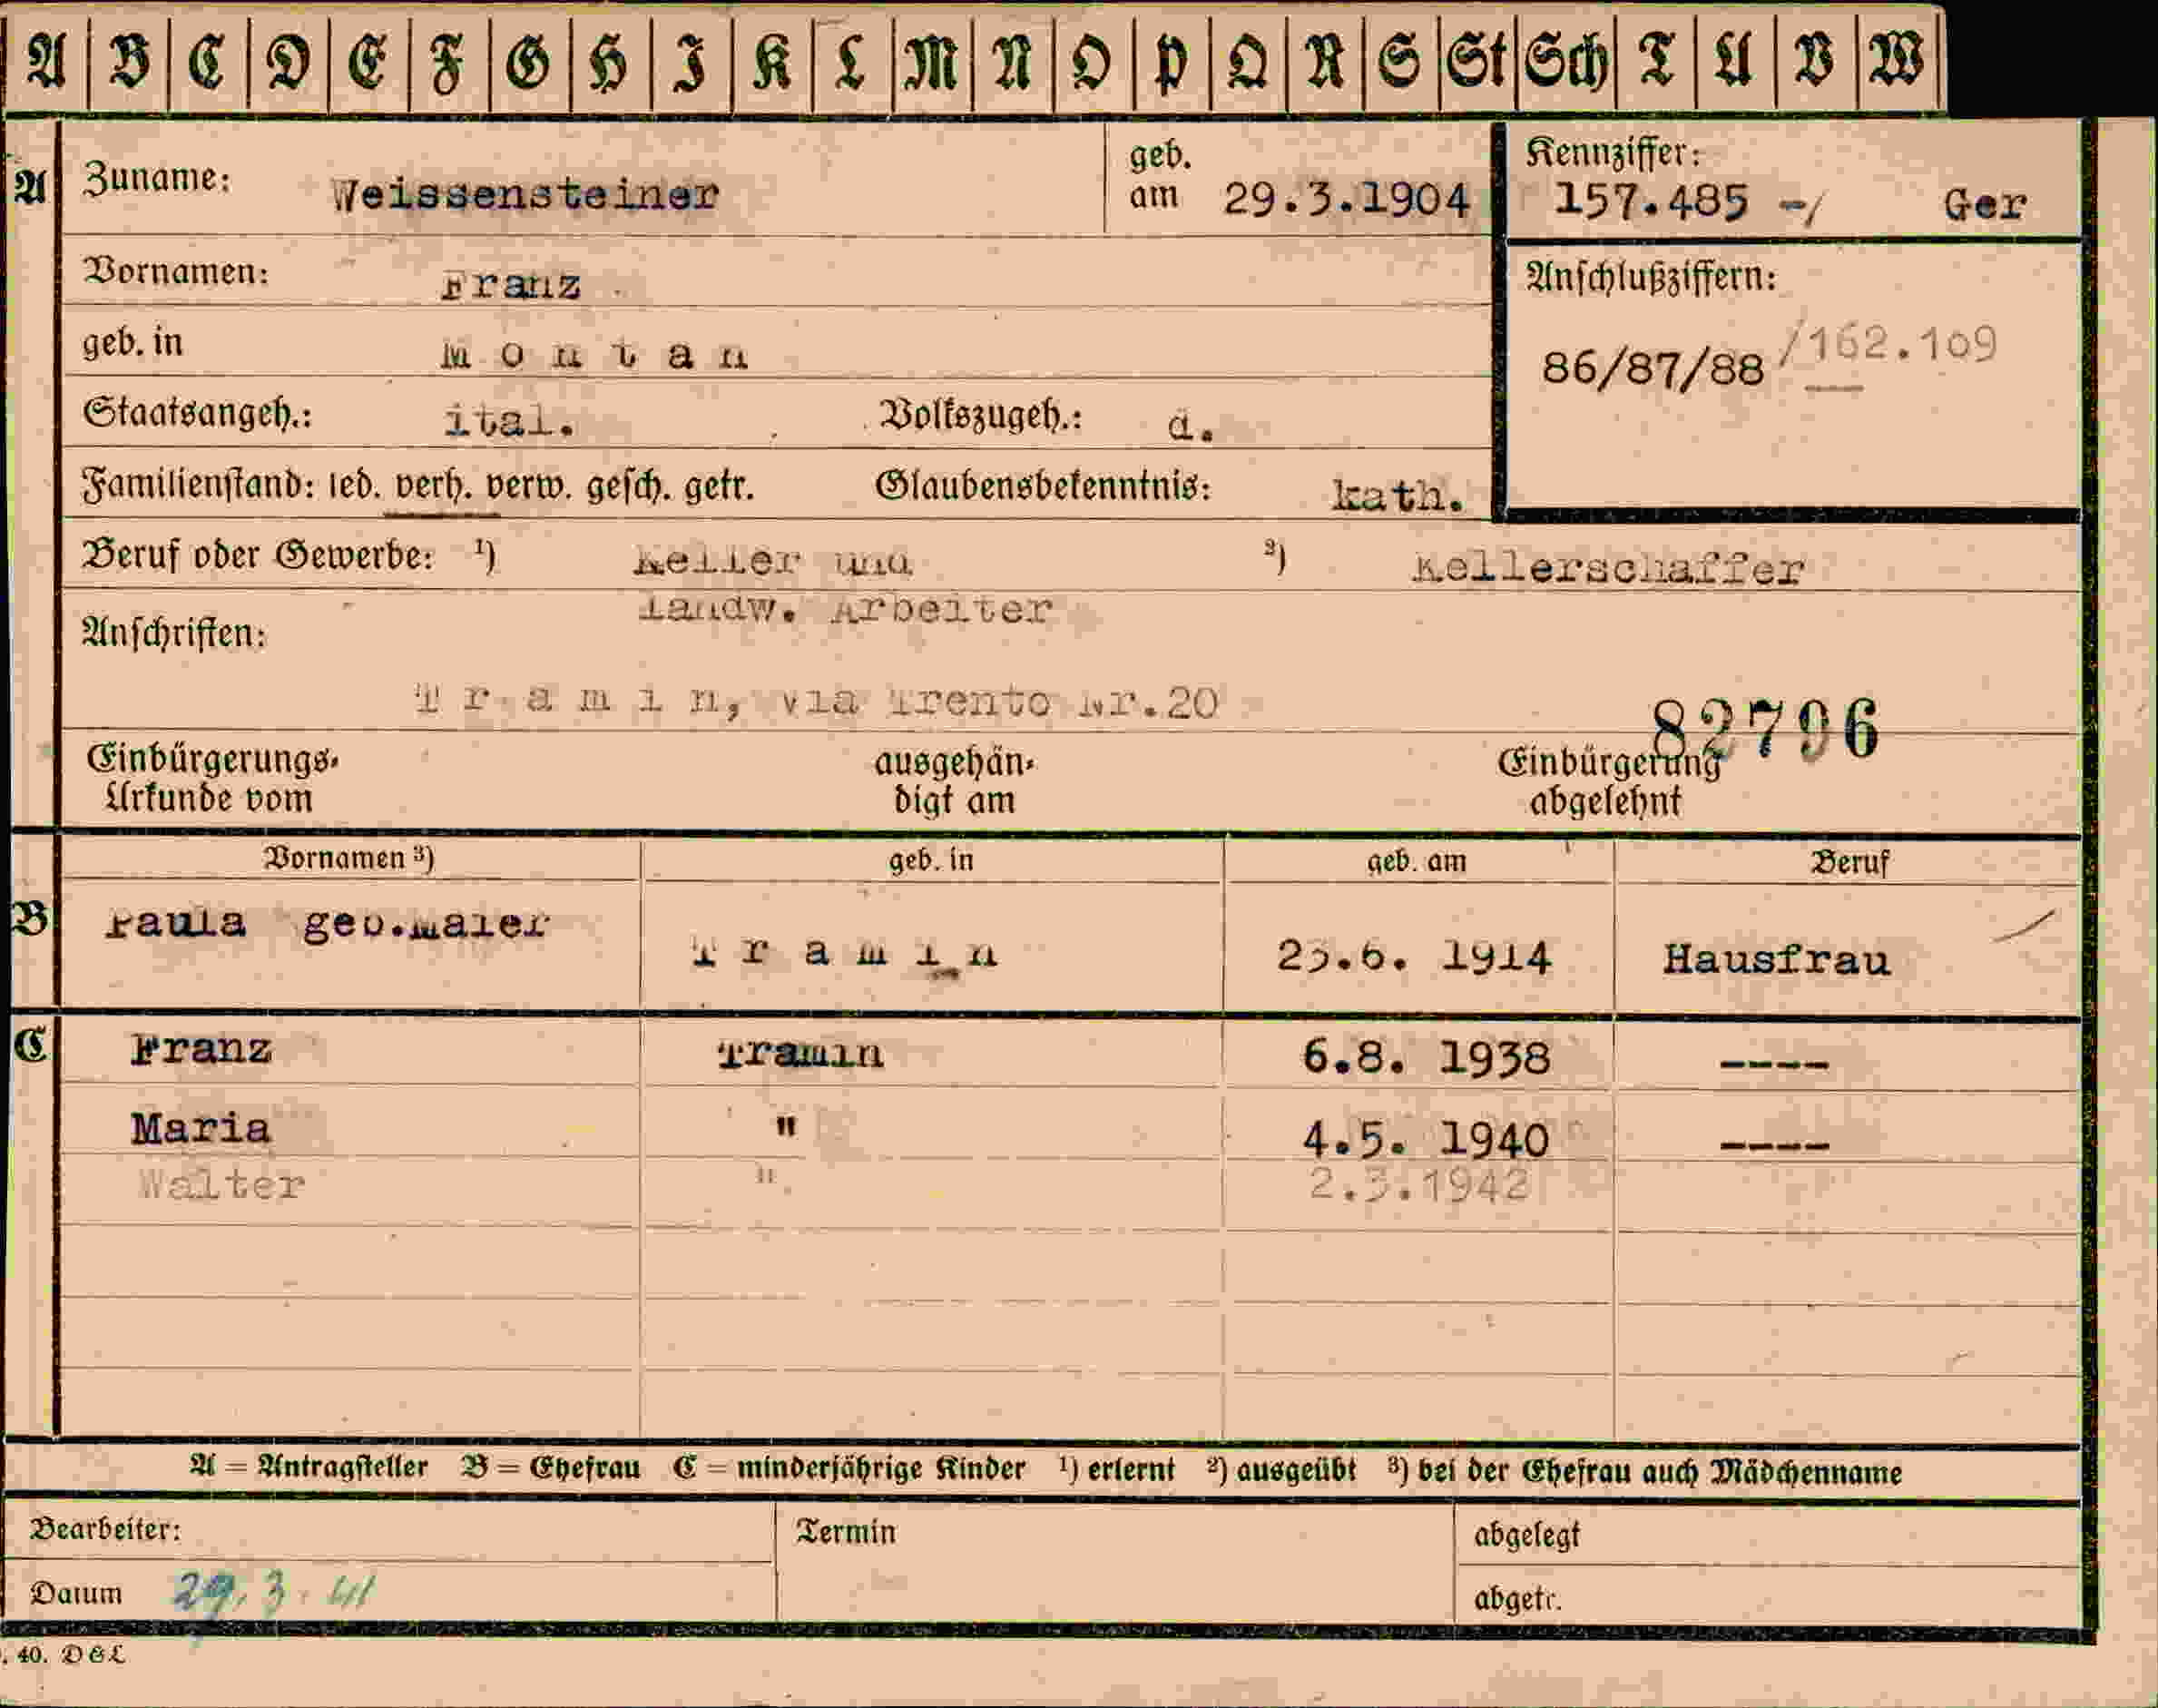 A B C D E F G H I K L M N O P Q R S St Sch T U V W
A Zuname: Weissensteiner geb. am 29.3.1904 Kennziffer: 157.485 -/ Ger
Vornamen: Franz
Anschlußziffern:
geb. in Montan
86/87/88 /162.109
Staatsangeh.: ital. Volkszugeh.: d.
Familienstand: led. verh. verw. gesch. getr. Glaubensbekenntnis: kath.
Beruf oder Gewerbe: ¹) Keller und ²) Kellerschaffer
landw. Arbeiter
Anschriften:
Tramin, via Trento Nr.20
82796
Einbürgerungs- ausgehän- Einbürgerung
Urkunde vom digt am abgelehnt
Vornamen ³) geb. in geb. am Beruf
B Paula geb.Maier Tramin 1914 Hausfrau
C Franz Tramin 6.8. 1938 ----
Maria " 4.5. 1940 ----
Walter " 2.3.1942
A = Antragsteller B = Ehefrau C = minderjährige Kinder ¹) erlernt ²) ausgeübt ³) bei der Ehefrau auch Mädchenname
Bearbeiter: Termin abgelegt
Datum 29.3.41 abgetr.
. 40. D&L